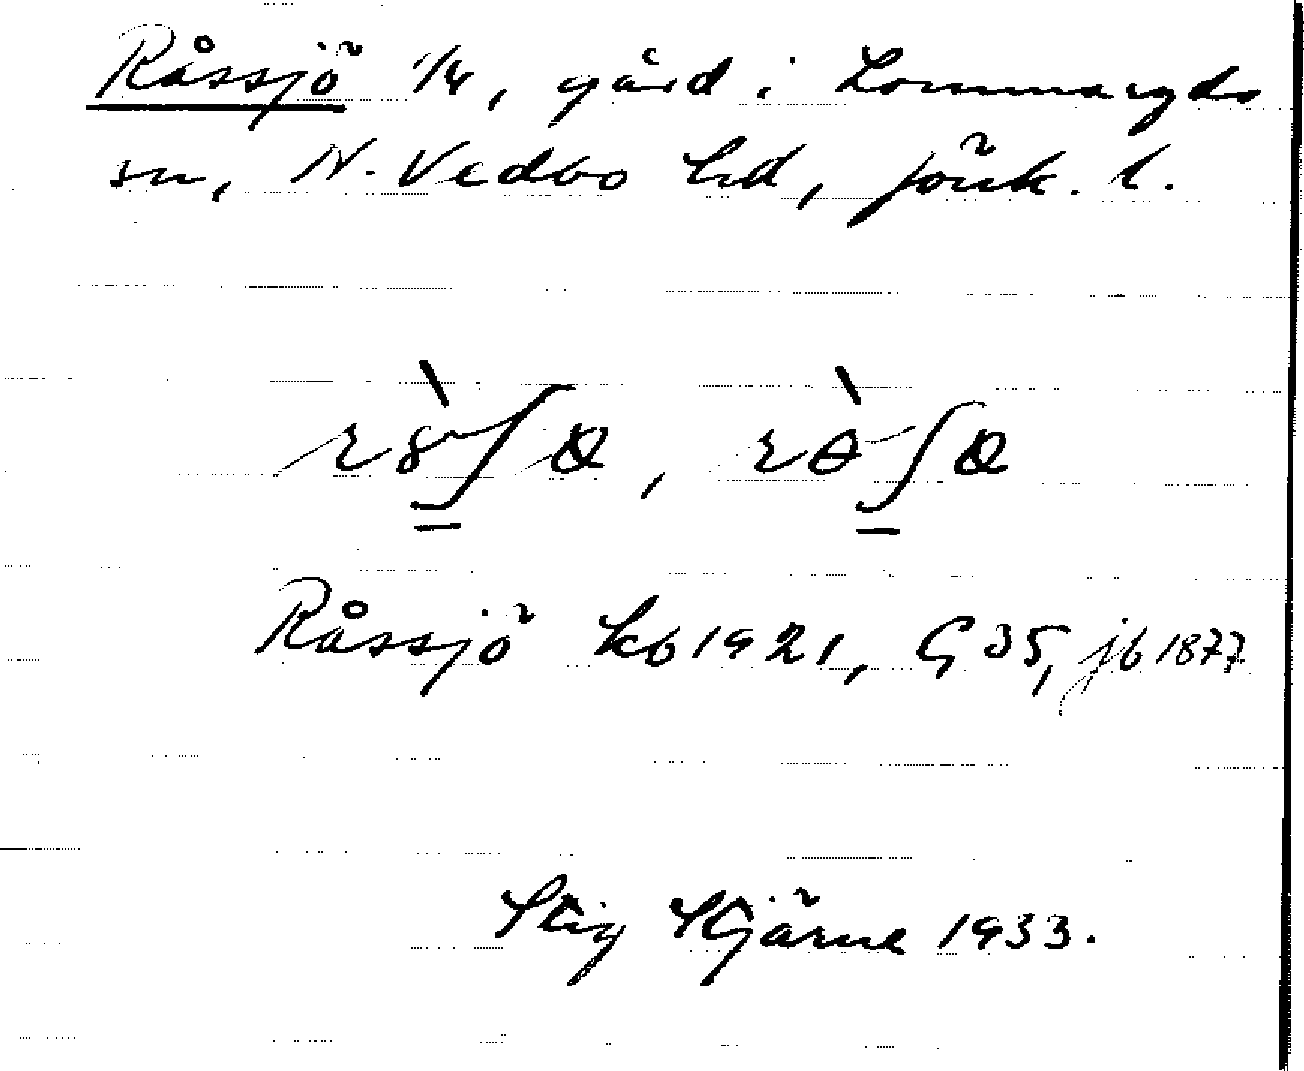 Råssjö 1/4, gård i Lommaryds
sn, N. Vedbo hd, Jönk. l.
Råssjö kb 1921, G 35, jb 1877
Stig Hjärne 1933.